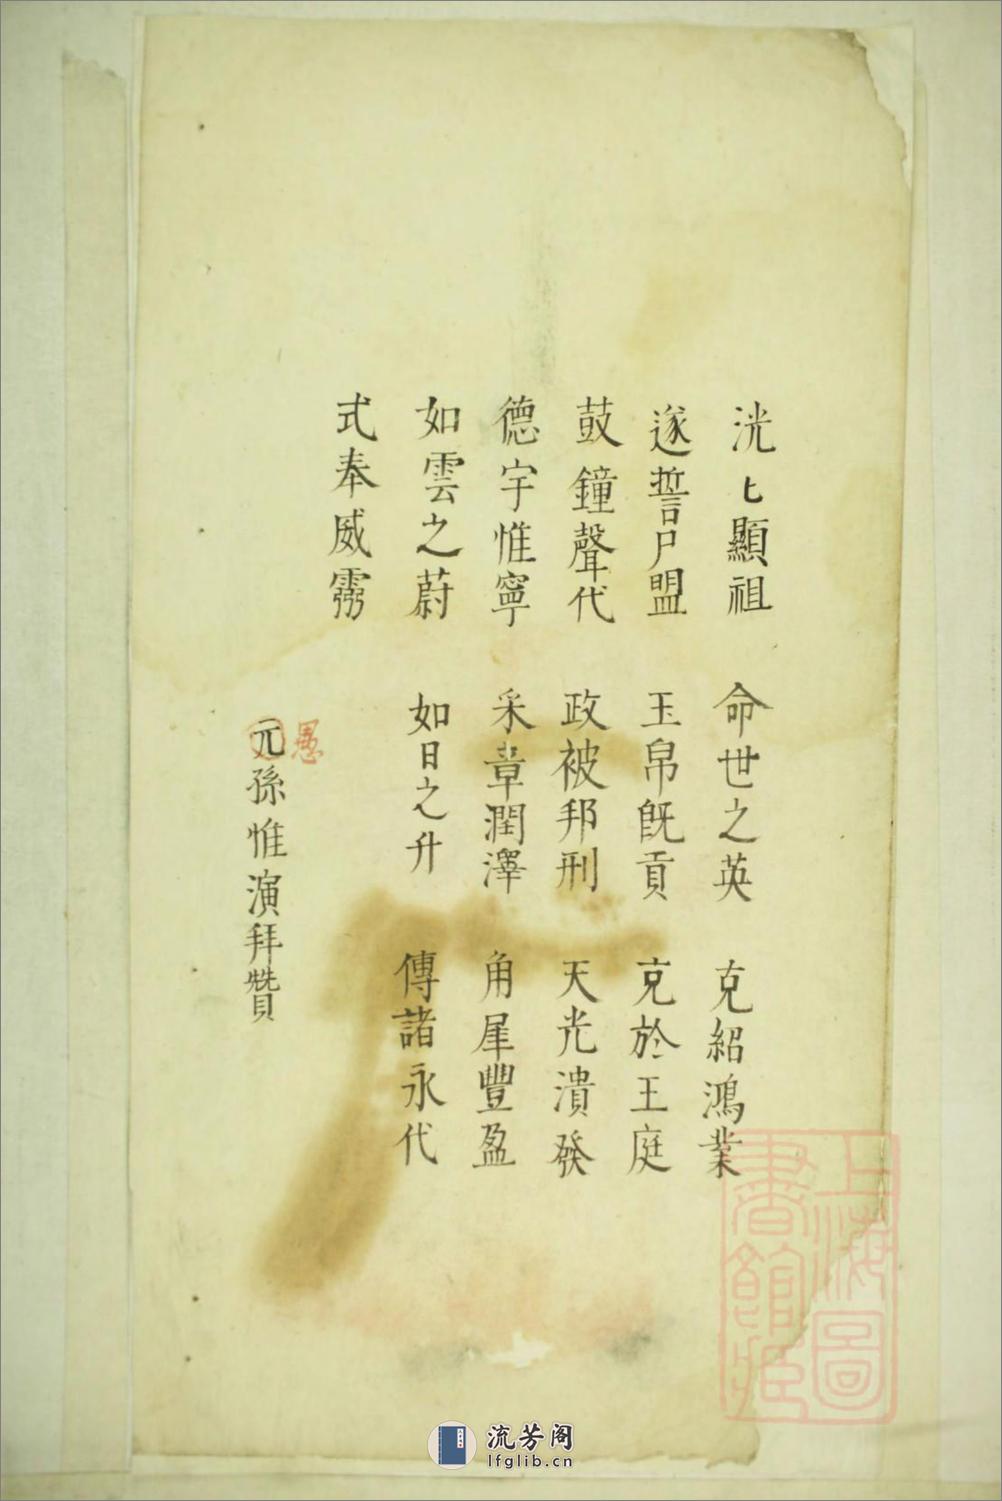 洸匕顯祖 命世之英 克紹鴻業
遂誓尸盟 玉帛旣貢 克於王庭
鼓鐘聲代 政被邦刑 天光潰發
德宇惟寧 采章潤澤 角犀豐盈
如雲之蔚 如日之升 傳諸永代
式奉威霛
愚
元孫惟演拜贊
上海圖書館藏
流芳阁
lfglib.cn